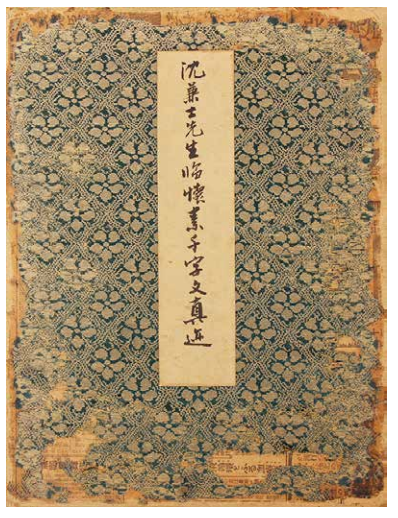 沈兼士先生临懐素千字文真迹